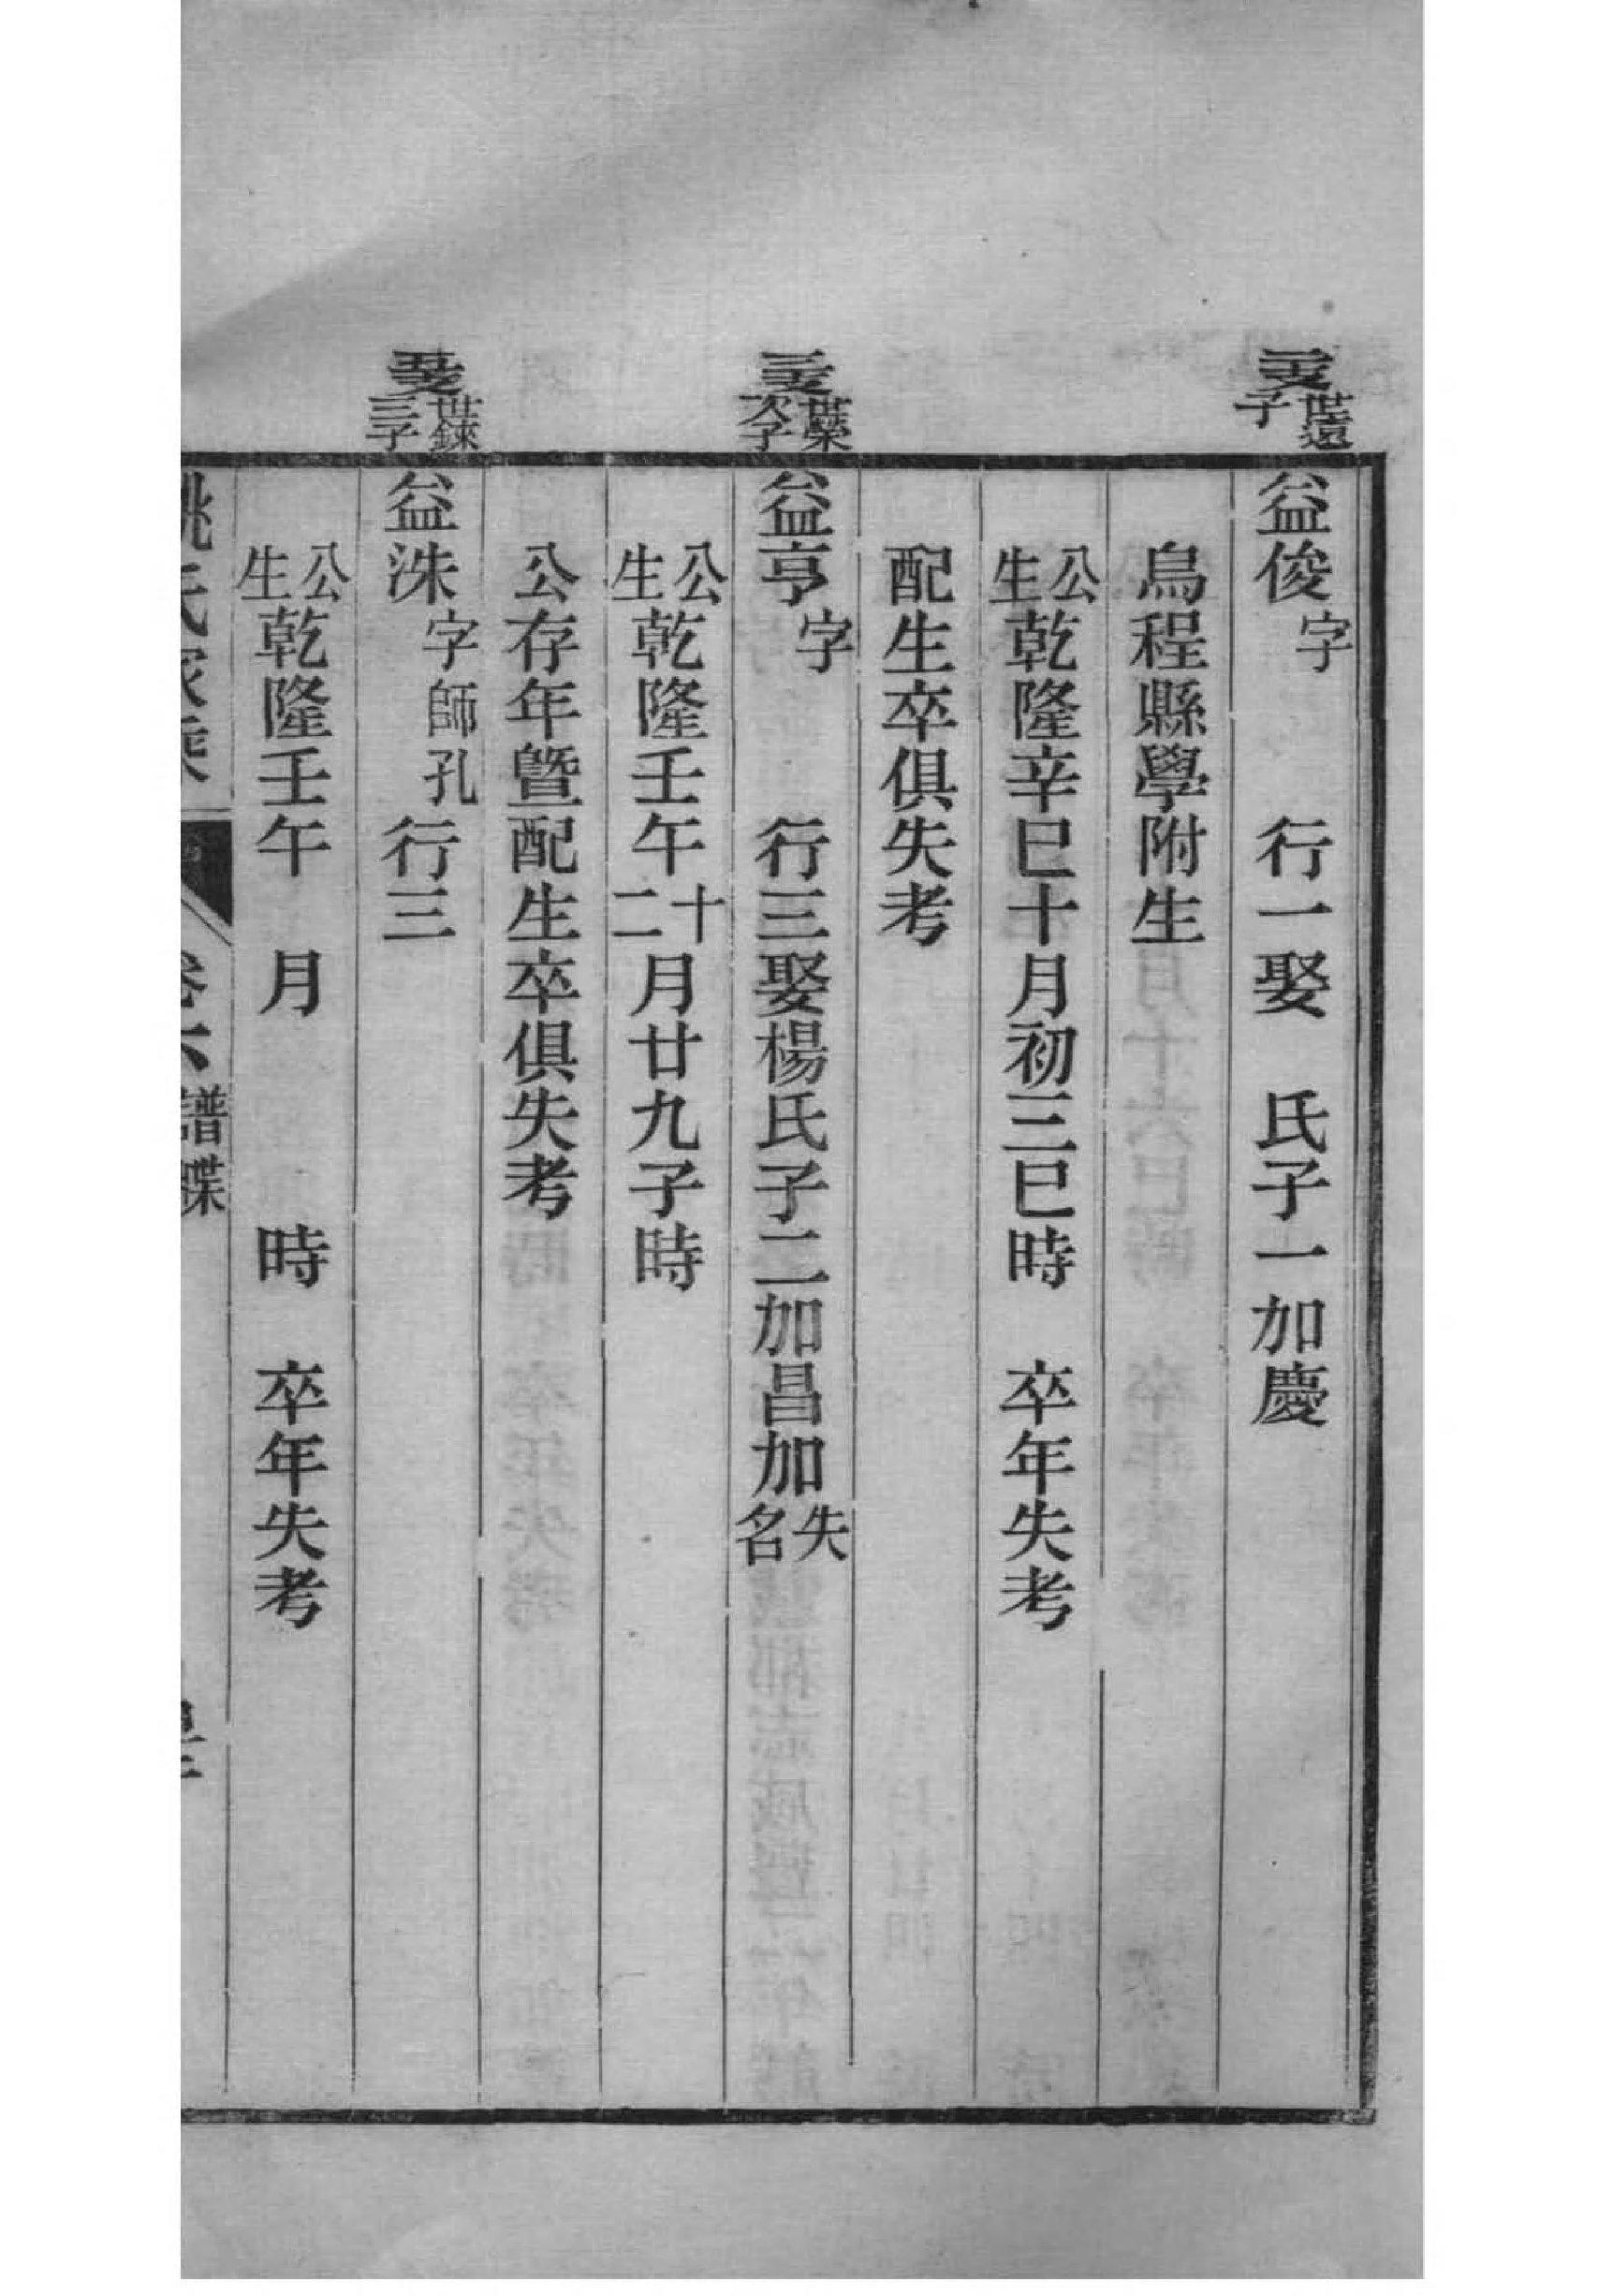 二支世遠子
益俊字 行一娶 氏子一加慶
烏程縣學附生
公生乾隆辛巳十月初三巳時 卒年失考
配生卒俱失考
三支世榮次子
益亨字 行三娶楊氏子二加昌加失名
公生乾隆壬午十二月廿九子時
公存年曁配生卒俱失考
五支世錸三子
益洙字師孔行三
公生乾隆壬午 月 時 卒年失考
姚氏家乘 卷六譜牒